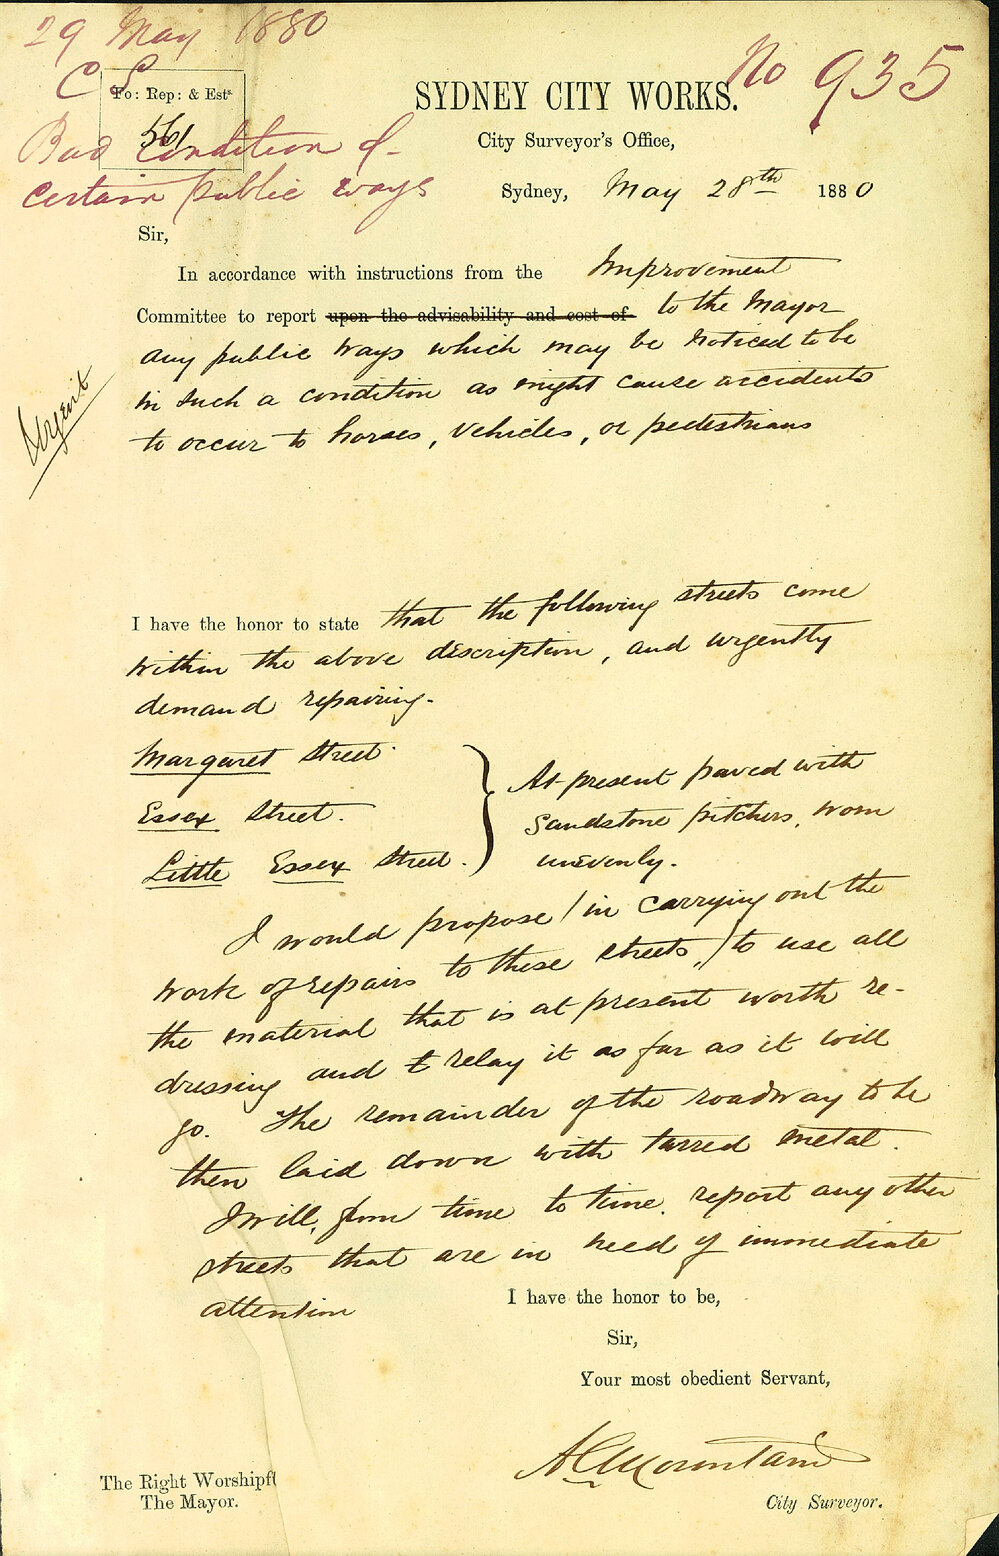 29 May 1880
No 935
C S
Fo: Rep: & Ests
561
Bad Condition of
certain public ways
SYDNEY CITY WORKS.
City Surveyor's Office,
Sydney, May 28th 1880
Sir,
In accordance with instructions from the Improvement
Committee to report upon the advisability and cost of to the Mayor
any public ways which may be noticed to be
in such a condition as might cause accidents
to occur to horses, vehicles, or pedestrians
Urgent
I have the honor to state that the following streets come
within the above discription, and urgently
demand repairing.
Margaret Street
Essex Street.
Little Essex Street.
At present paved with
Sandstone pitchers, worn
unevenly.
I would propose (in carrying out the
work of repairs to these streets,) to use all
the material that is at present worth re-
dressing and t relay it as far as it will
go. The remainder of the roadway to be
then laid down with tarred metal.
I will, from time to time, report any other
streets that are in need of immediate
attention
I have the honor to be,
Sir,
Your most obedient Servant,
A C Mountain
City Surveyor.
The Right Worshipf
The Mayor.